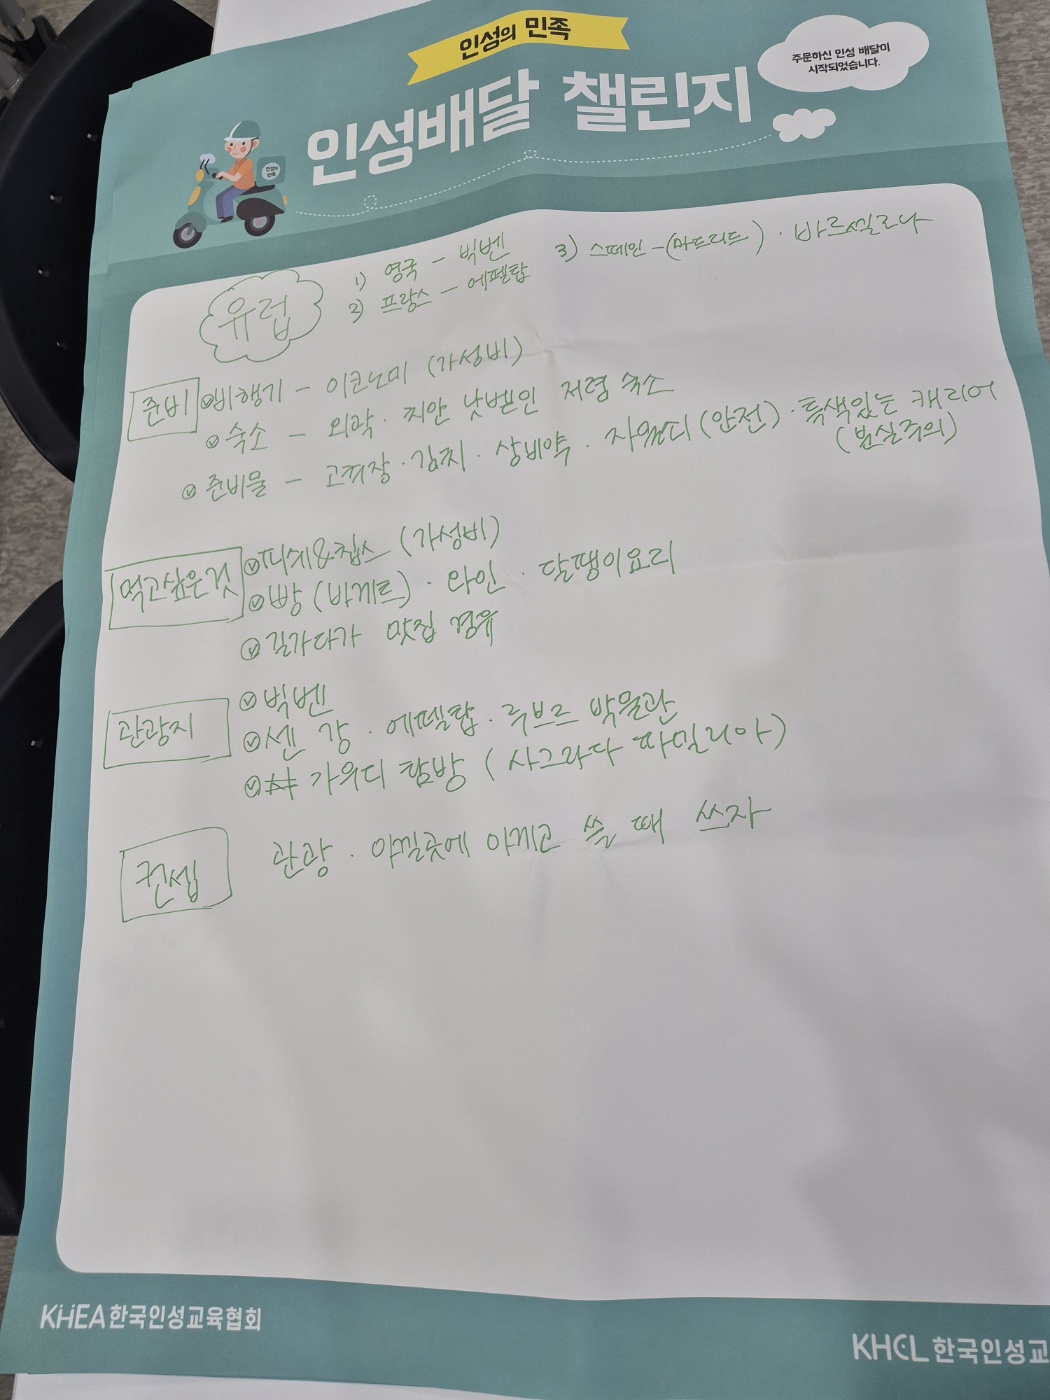 인성의 민족
인성배달 챌린지
주문하신 인성 배달이
시작되었습니다.
인성의
민족
유럽
1) 영국 - 빅벤
2) 프랑스 - 에펠탑
3) 스페인 - (마드리드) · 바르셀로나
준비
비행기 - 이코노미 (가성비)
숙소 - 외곽 · 치안 낫밷인 저렴 숙소
준비물 - 고추장 · 김치 · 상비약 · 자물쇠 (안전) · 특색있는 캐리어
(분실주의)
먹고싶은것
피쉬&칩스 (가성비)
빵 (바게트) · 와인 · 달팽이요리
길가다가 맛집 경유
관광지
빅벤
센 강 · 에펠탑 · 루브르 박물관
가우디 탐방 (사그라다 파밀리아)
컨셉
관광 · 아낄곳에 아끼고 쓸 때 쓰자
KHEA 한국인성교육협회
KHCL 한국인성교